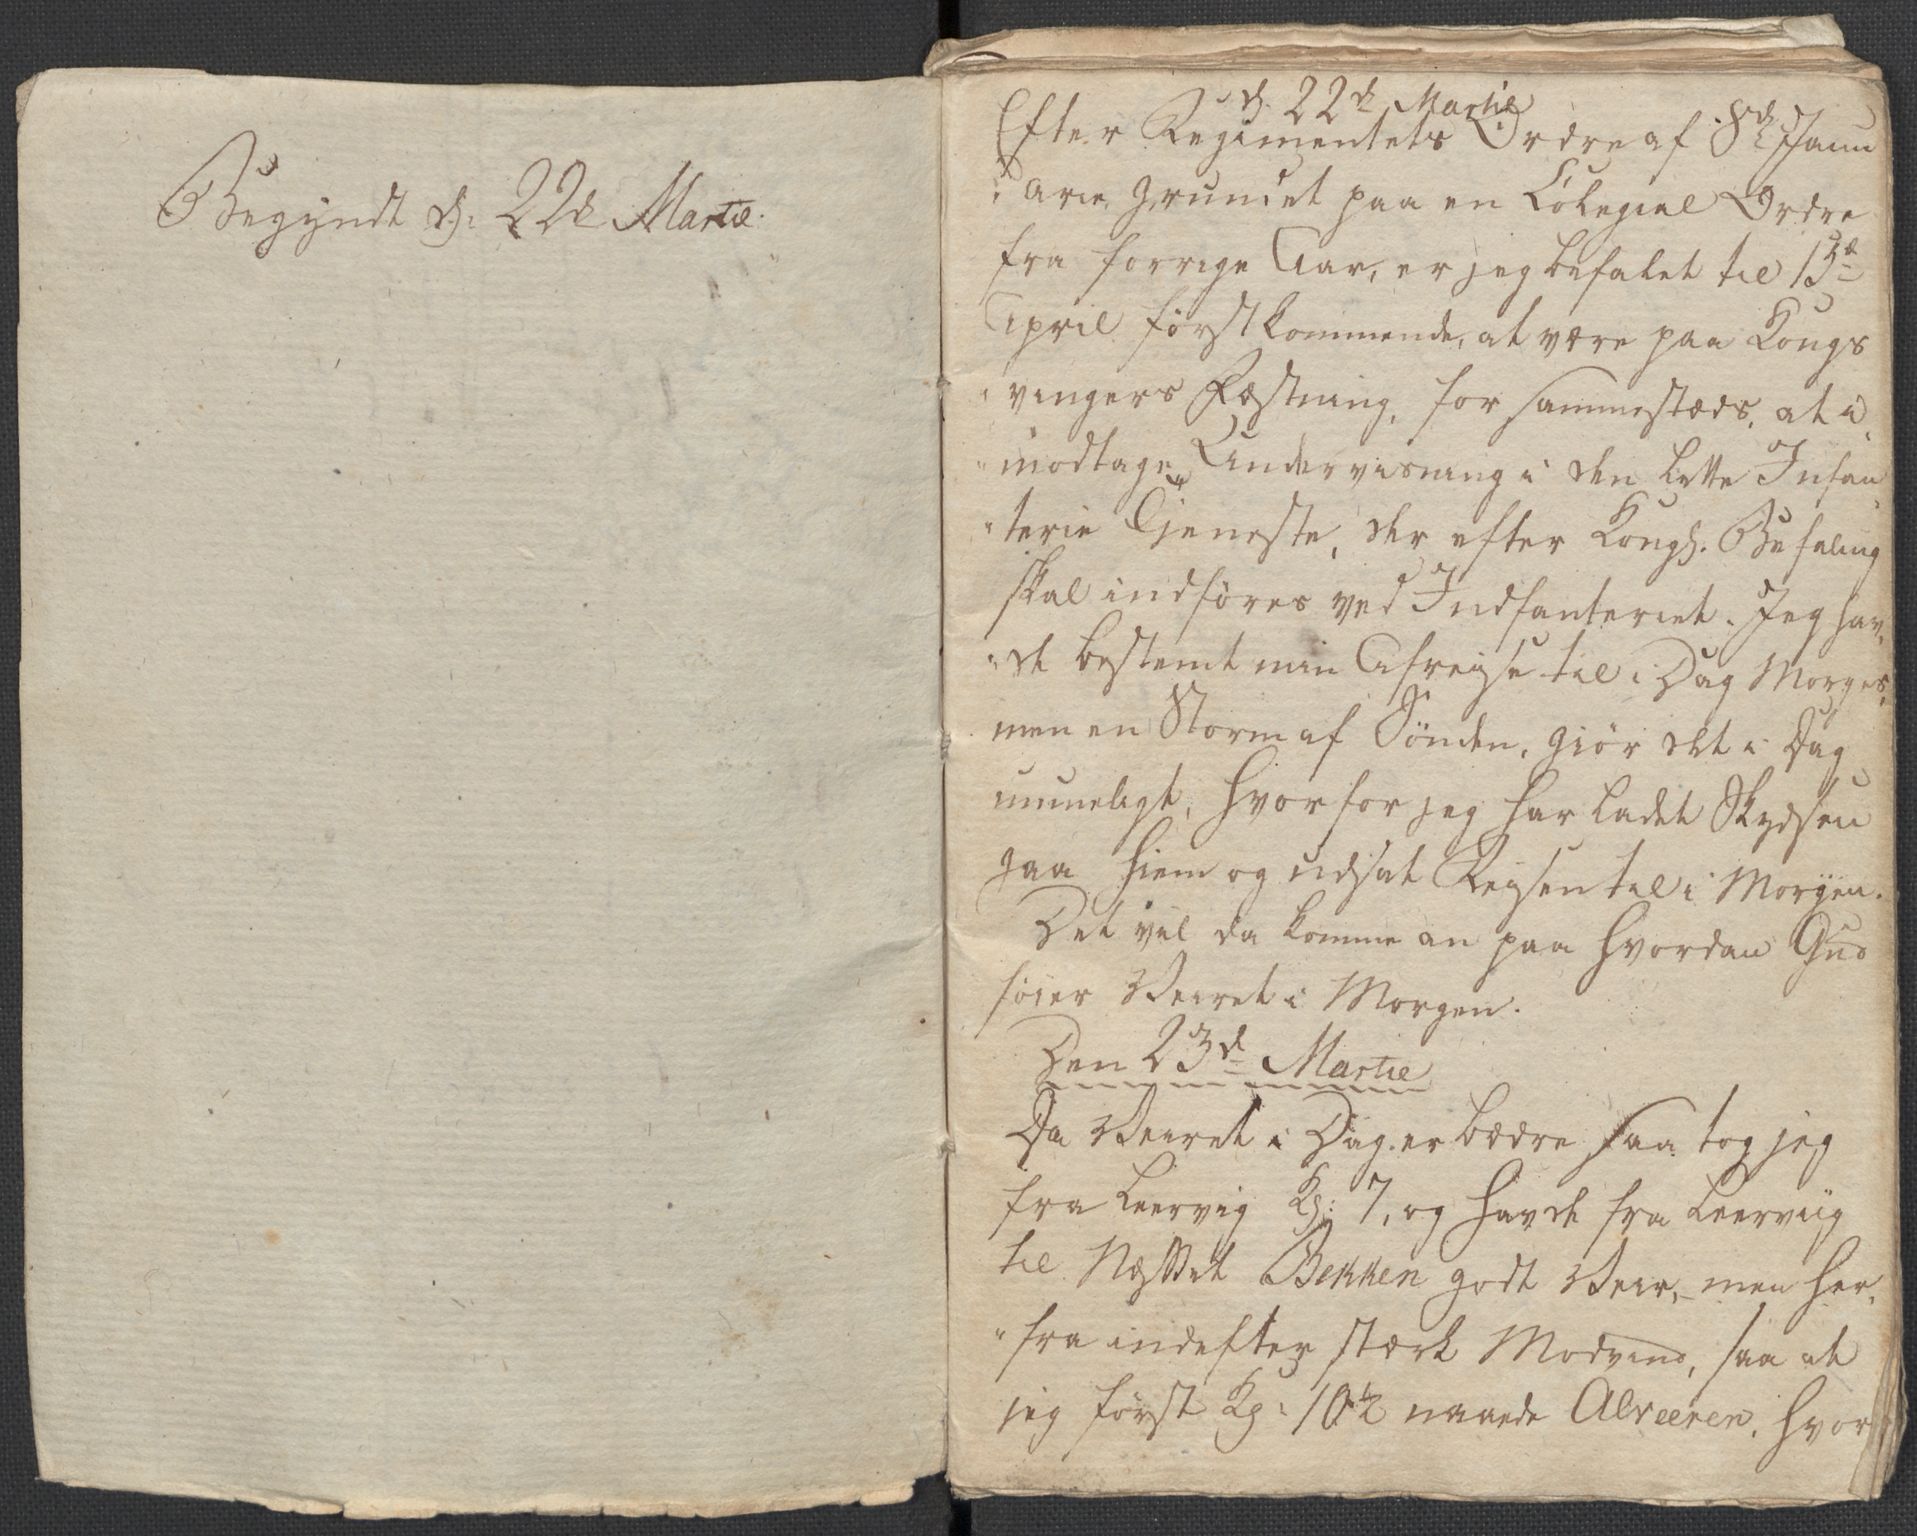 Begyndt d: 22d Martie.
d. 22de Martie
Efter Regimentets Ordre af 8de Janu
"arie, grundet paa en Collegial Ordre
fra forrige Aar, er jeg befalet til 13de
April førstkommende, at være paa Kongs
"vingers Fæstning, for sammestæds, at i
"modtage Undervisning i den lette Infan
"terie Tjeneste, der efter Kongl. Befaling
skal indføres ved Indfanteriet. Jeg hav,
"de bestemt min Afreyse til i Dag Morges,
men en Storm af Sønden, giør det i Dag
umueligt, hvorfor jeg har ladet Skydsen
gaa hiem og udsat Reysen til i Morgen.
Det vil da komme an paa hvordan Gud
føier Veiret i Morgen.
Den 23de Martie
Da Veiret i Dag er bædre saa tog jeg
fra Leervig Kl: 7, og havde fra Leerviig
til Næsset Bekken godt Veir, men her,
"fra indefter stærk Modvind, saa at
jeg først Kl: 10½ naaede Alveeren, hvor